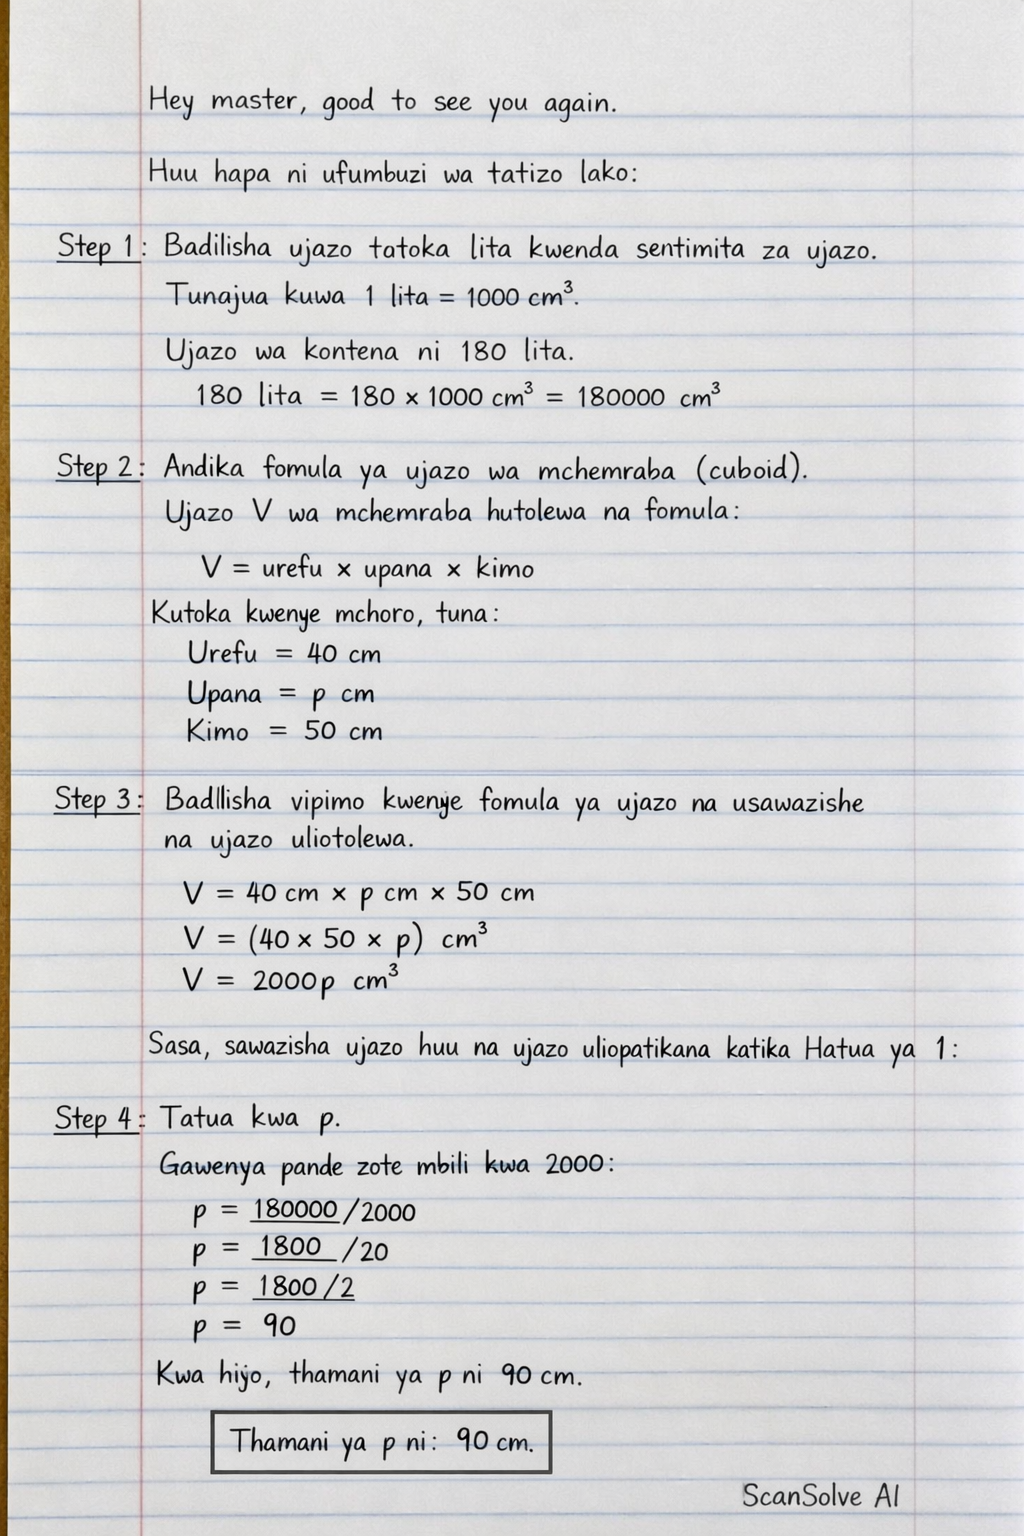 Hey master, good to see you again.
Huu hapa ni ufumbuzi wa tatizo lako:
Step 1: Badilisha ujazo tatoka lita kwenda sentimita za ujazo.
Tunajua kuwa 1 lita = 1000 cm³.
Ujazo wa kontena ni 180 lita.
180 lita = 180 × 1000 cm³ = 180000 cm³
Step 2: Andika fomula ya ujazo wa mchemraba (cuboid).
Ujazo V wa mchemraba hutolewa na fomula:
V = urefu × upana × kimo
Kutoka kwenye mchoro, tuna:
Urefu = 40 cm
Upana = p cm
Kimo = 50 cm
Step 3: Badllisha vipimo kwenye fomula ya ujazo na usawazishe
na ujazo uliotolewa.
V = 40 cm × p cm × 50 cm
V = (40 × 50 × p) cm³
V = 2000p cm³
Sasa, sawazisha ujazo huu na ujazo uliopatikana katika Hatua ya 1:
Step 4: Tatua kwa p.
Gawenya pande zote mbili kwa 2000:
p = 180000/2000
p = 1800/20
p = 1800/2
p = 90
Kwa hijo, thamani ya p ni 90 cm.
Thamani ya p ni: 90 cm.
ScanSolve AI